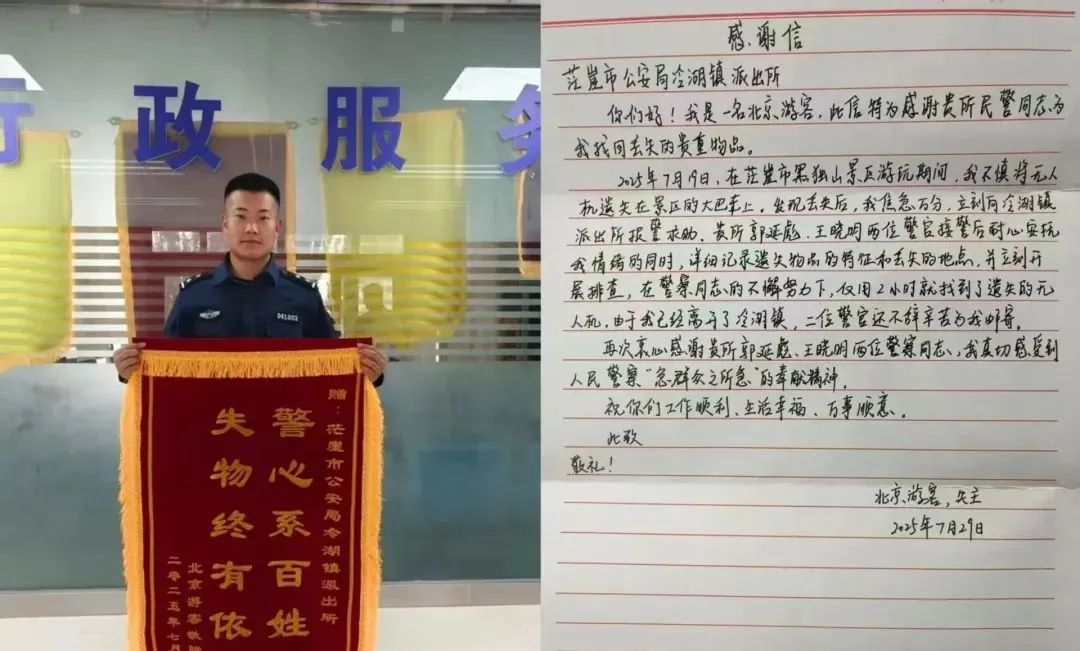 行政服务
041002
赠:茫崖市公安局冷湖镇派出所
警心系百姓
失物终有依
北京游客敬赠
二零二五年七月
感谢信
茫崖市公安局冷湖镇派出所
你们好!我是一名北京游客,此信特为感谢贵所民警同志为
我找回丢失的贵重物品。
2025年7月19日,在茫崖市黑独山景区游玩期间,我不慎将无人
机遗失在景区的大巴车上。发现丢失后,我焦急万分,立刻向冷湖镇
派出所报警求助。贵所郭延彪、王晓明两位警官接警后耐心安抚
我情绪的同时,详细记录遗失物品的特征和丢失的地点,并立刻开
展排查,在警察同志的不懈努力下,仅用2小时就找到了遗失的无
人机,由于我已经离开了冷湖镇,二位警官还不辞辛苦为我邮寄。
再次衷心感谢贵所郭延彪、王晓明两位警察同志,我真切感受到
人民警察“急群众之所急”的奉献精神。
祝你们工作顺利、生活幸福、万事顺意。
此致
敬礼!
北京游客,失主
2025年7月29日